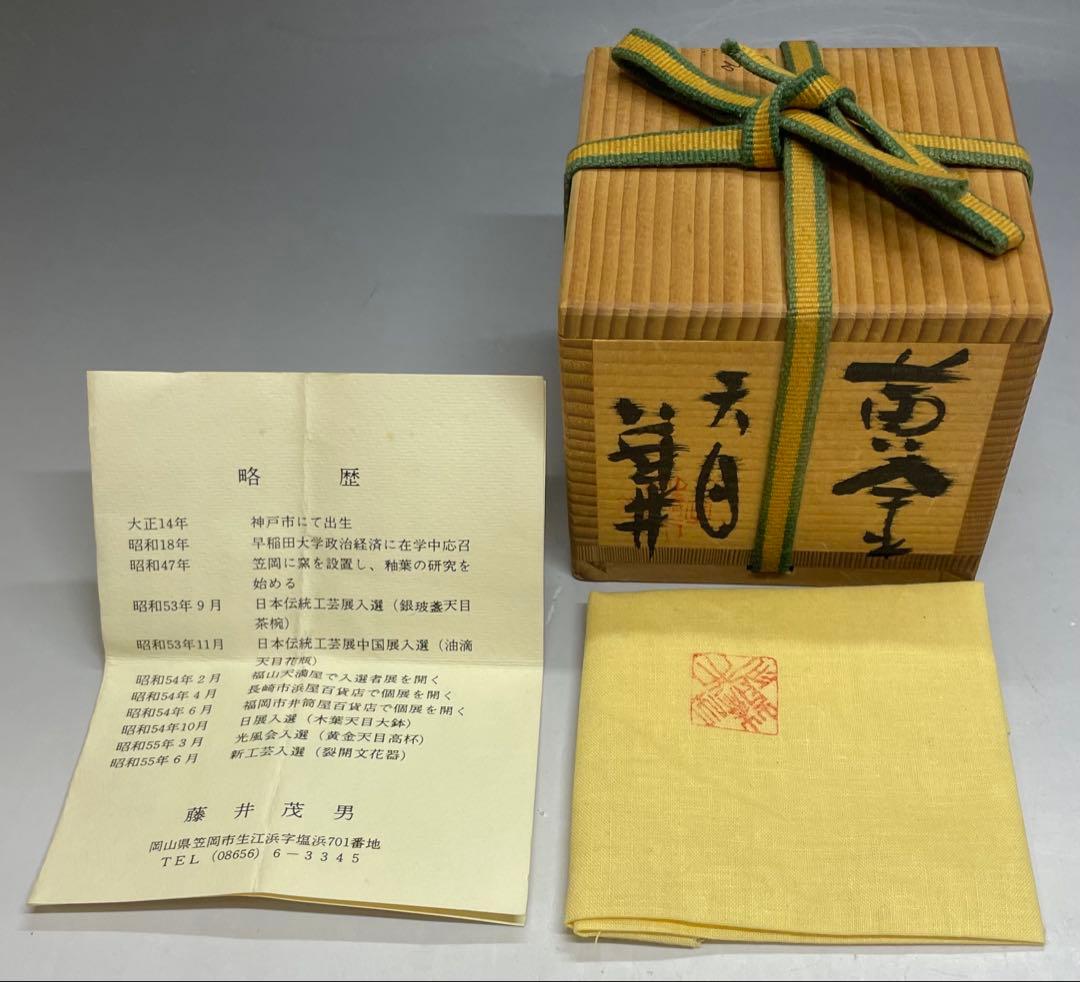 略 歴
大正14年 神戸市にて出生
昭和18年 早稲田大学政治経済に在学中応召
昭和47年 笠岡に窯を設置し、釉葉の研究を
始める
昭和53年9月 日本伝統工芸展入選（銀玻盞天目
茶椀）
昭和53年11月 日本伝統工芸展中国展入選（油滴
天目花瓶）
昭和54年2月 福山天満屋で入選者展を開く
昭和54年4月 長崎市浜屋百貨店で個展を開く
昭和54年6月 福岡市井筒屋百貨店で個展を開く
昭和54年10月 日展入選（木葉天目大鉢）
昭和55年3月 光風会入選（黄金天目高杯）
昭和55年6月 新工芸入選（裂開文花器）
藤井茂男
岡山県笠岡市生江浜字塩浜701番地
TEL（08656）6－3345
黄金
天目